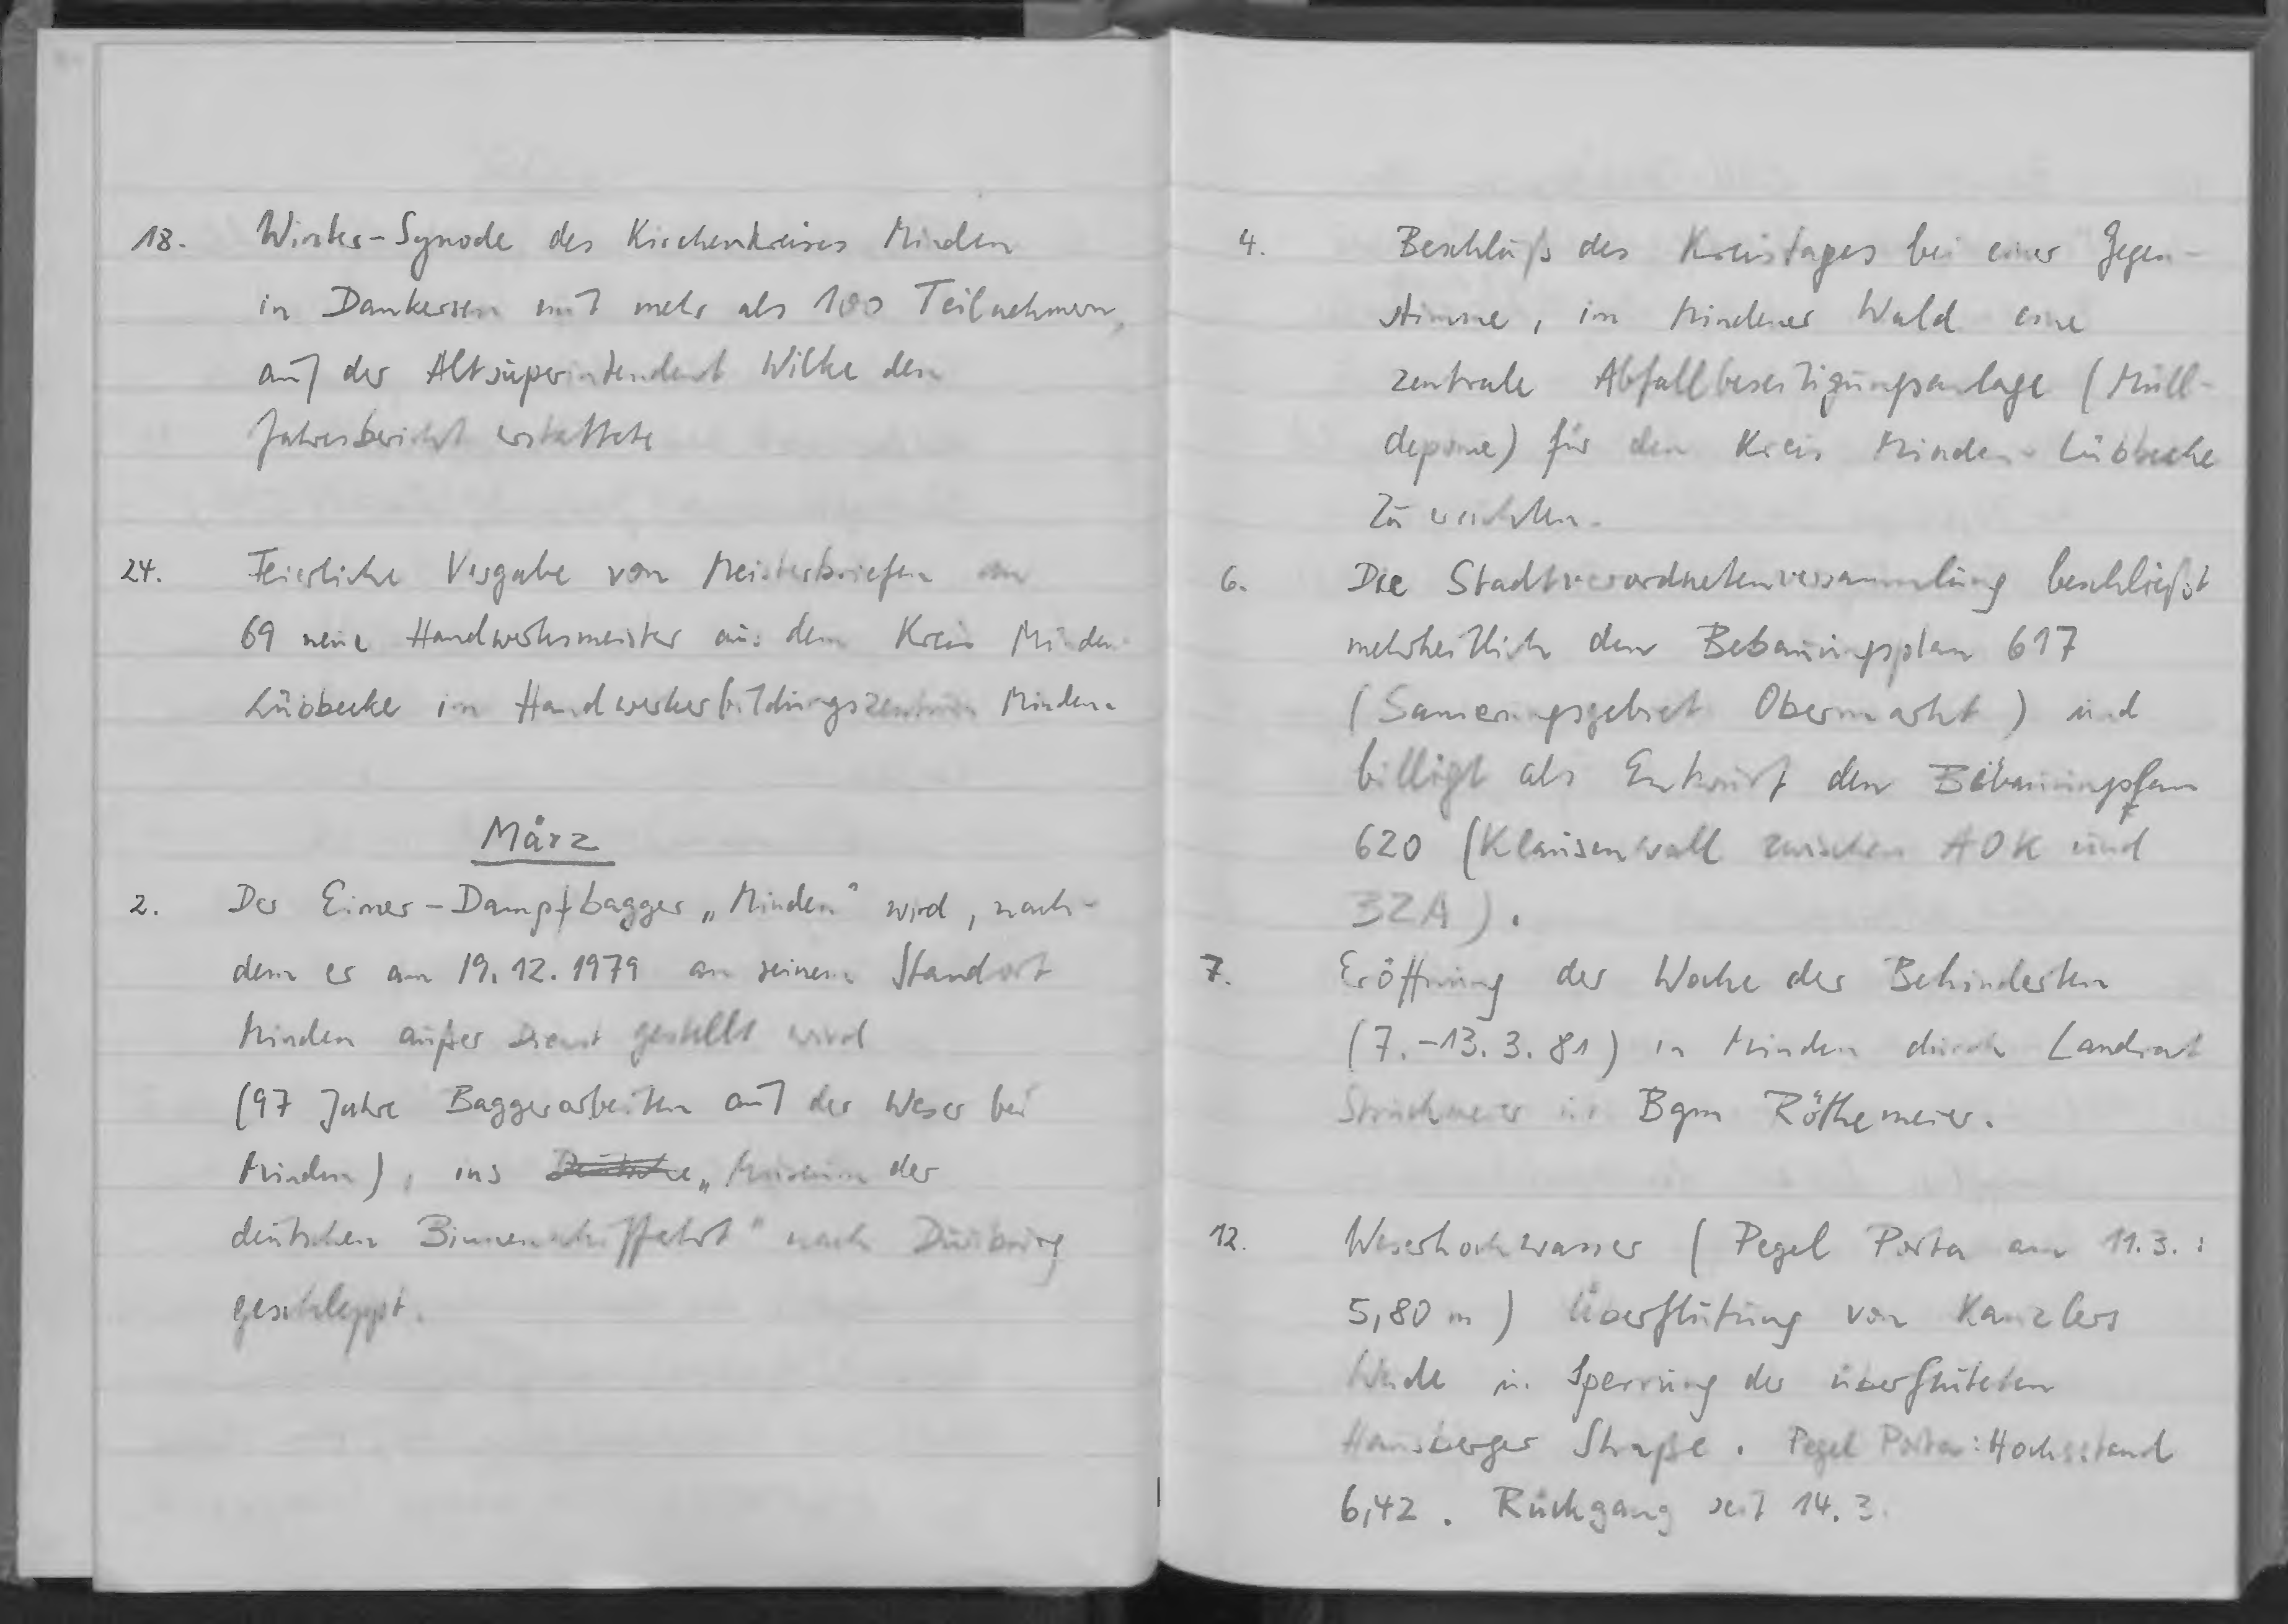 18. Winter-Synode des Kirchenkreises Minden
in Dankersen mit mehr als 100 Teilnehmern,
auf der Altsuperintendent Wilke den
Jahresbericht erstattete
24. Feierliche Vergabe von Meisterbriefen an
69 neue Handwerksmeister aus dem Kreis Minden-
Lübbecke im Handwerkerbildungszentrum Minden.
März
2. Der Eimer-Dampfbagger „Minden" wird, nach-
dem er am 19.12.1979 an seinem Standort
Minden außer Dienst gestellt wird
(97 Jahre Baggerarbeiten auf der Weser bei
Minden), ins Deutsche „Museum der
deutschen Binnenschiffahrt" nach Duisburg
geschleppt.
4. Beschluß des Kreistages bei einer Gegen-
stimme, im Mindener Wald eine
zentrale Abfallbeseitigungsanlage (Müll-
deponie) für den Kreis Minden-Lübbecke
zu errichten.
6. Die Stadtverordnetenversammlung beschließt
mehrheitlich den Bebauungsplan 617
(Sanierungsgebiet Obermarkt) und
billigt als Entwurf den Bebauungsplan
620 (Klausenwall zwischen AOK und
BZA).
7. Eröffnung der Woche der Behinderten
(7.-13.3.81) in Minden durch Landrat
Struckmeier u. Bgm Röthemeier.
12. Weserhochwasser (Pegel Porta am 11.3.:
5,80 m) Überflutung von Kanzlers
Weide u. Sperrung der überfluteten
Hausberger Straße. Pegel Porta: Hochstand
6,42. Rückgang seit 14.3.